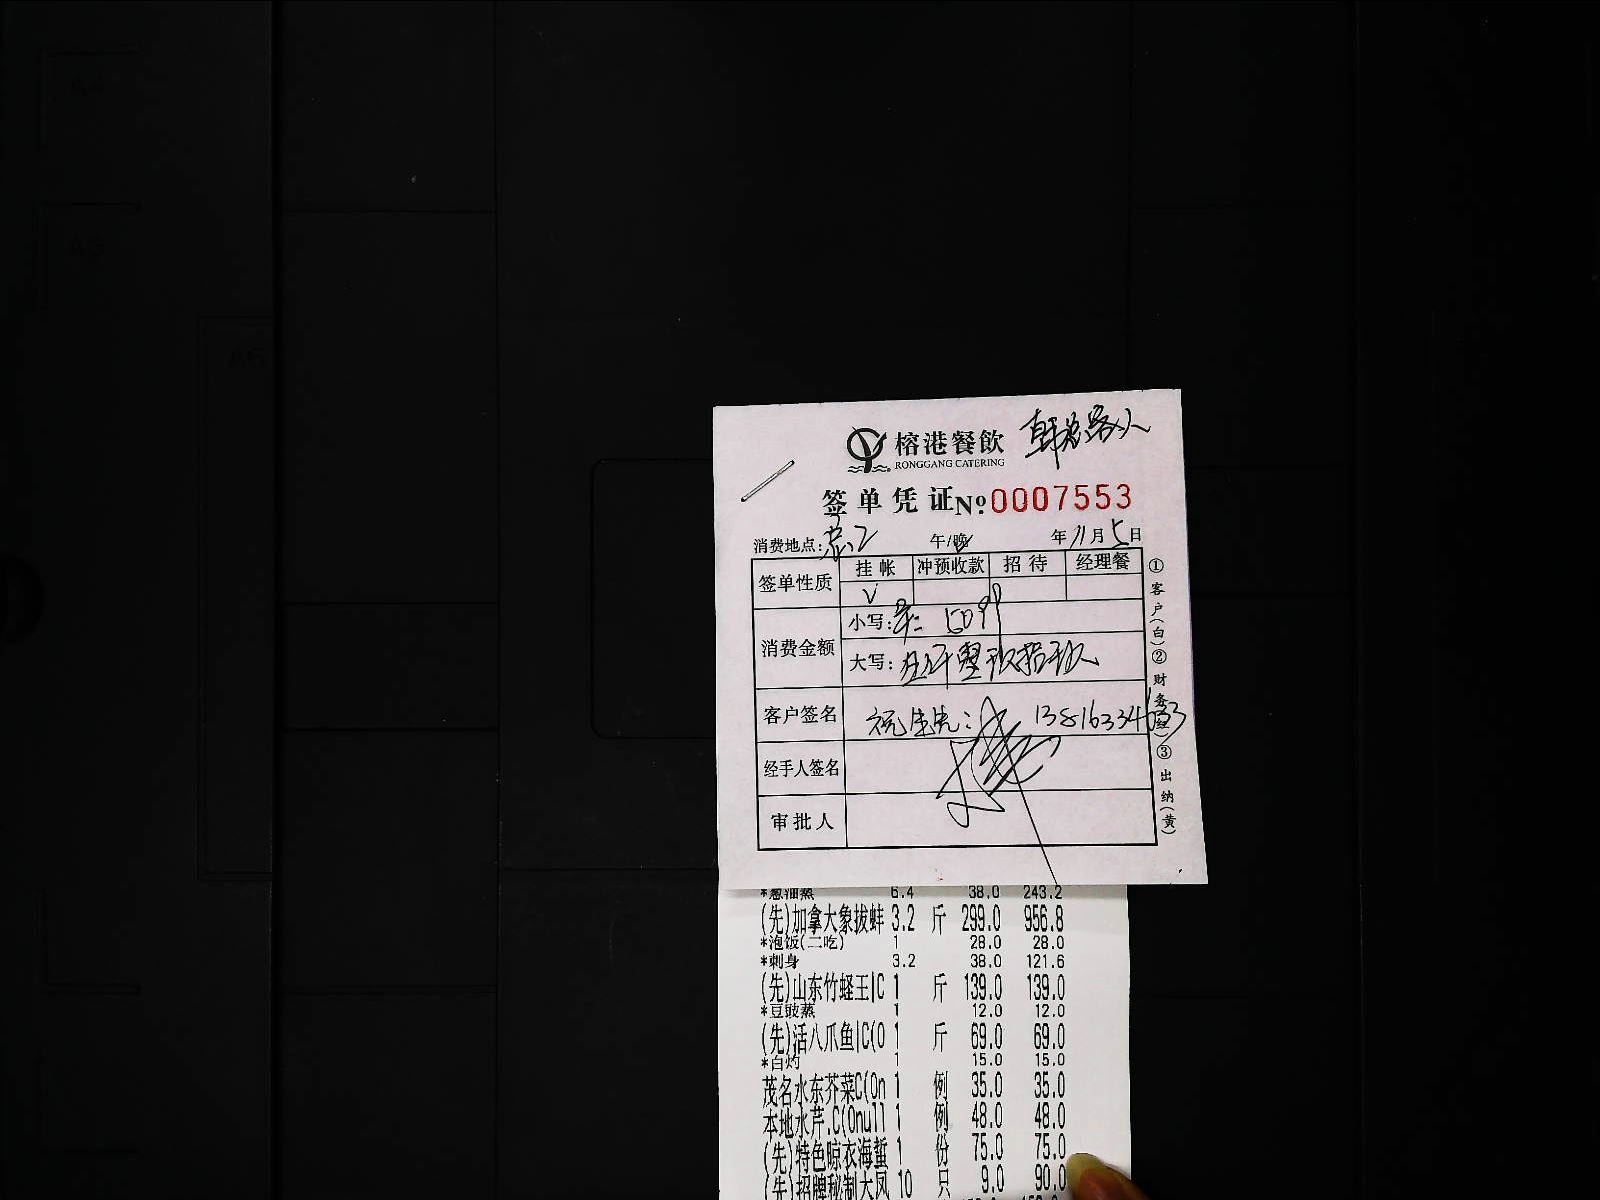 韩总客人
榕港餐飲
RONGGANG CATERING
签单凭证 №0007553
消费地点: 午/晚 年11月5日
签单性质 挂帐 冲预收款 招待 经理餐
√
消费金额 小写:
大写:
客户签名 祝先生:
经手人签名
审批人
①客户(白)②财务(红)③出纳(黄)
*葱油蒸 6.4 38.0 243.2
(先)加拿大象拔蚌 3.2 斤 299.0 956.8
*泡饭(二吃) 1 28.0 28.0
*刺身 3.2 38.0 121.6
(先)山东竹蛏王|C 1 斤 139.0 139.0
*豆豉蒸 1 12.0 12.0
(先)活八爪鱼|C(0 1 斤 69.0 69.0
*白灼 1 15.0 15.0
茂名水东芥菜C(0n 1 例 35.0 35.0
本地水芹.C(0null 1 例 48.0 48.0
(先)特色晾衣海蜇 1 份 75.0 75.0
(先)招牌秘制大凤 10 只 9.0 90.0
A5